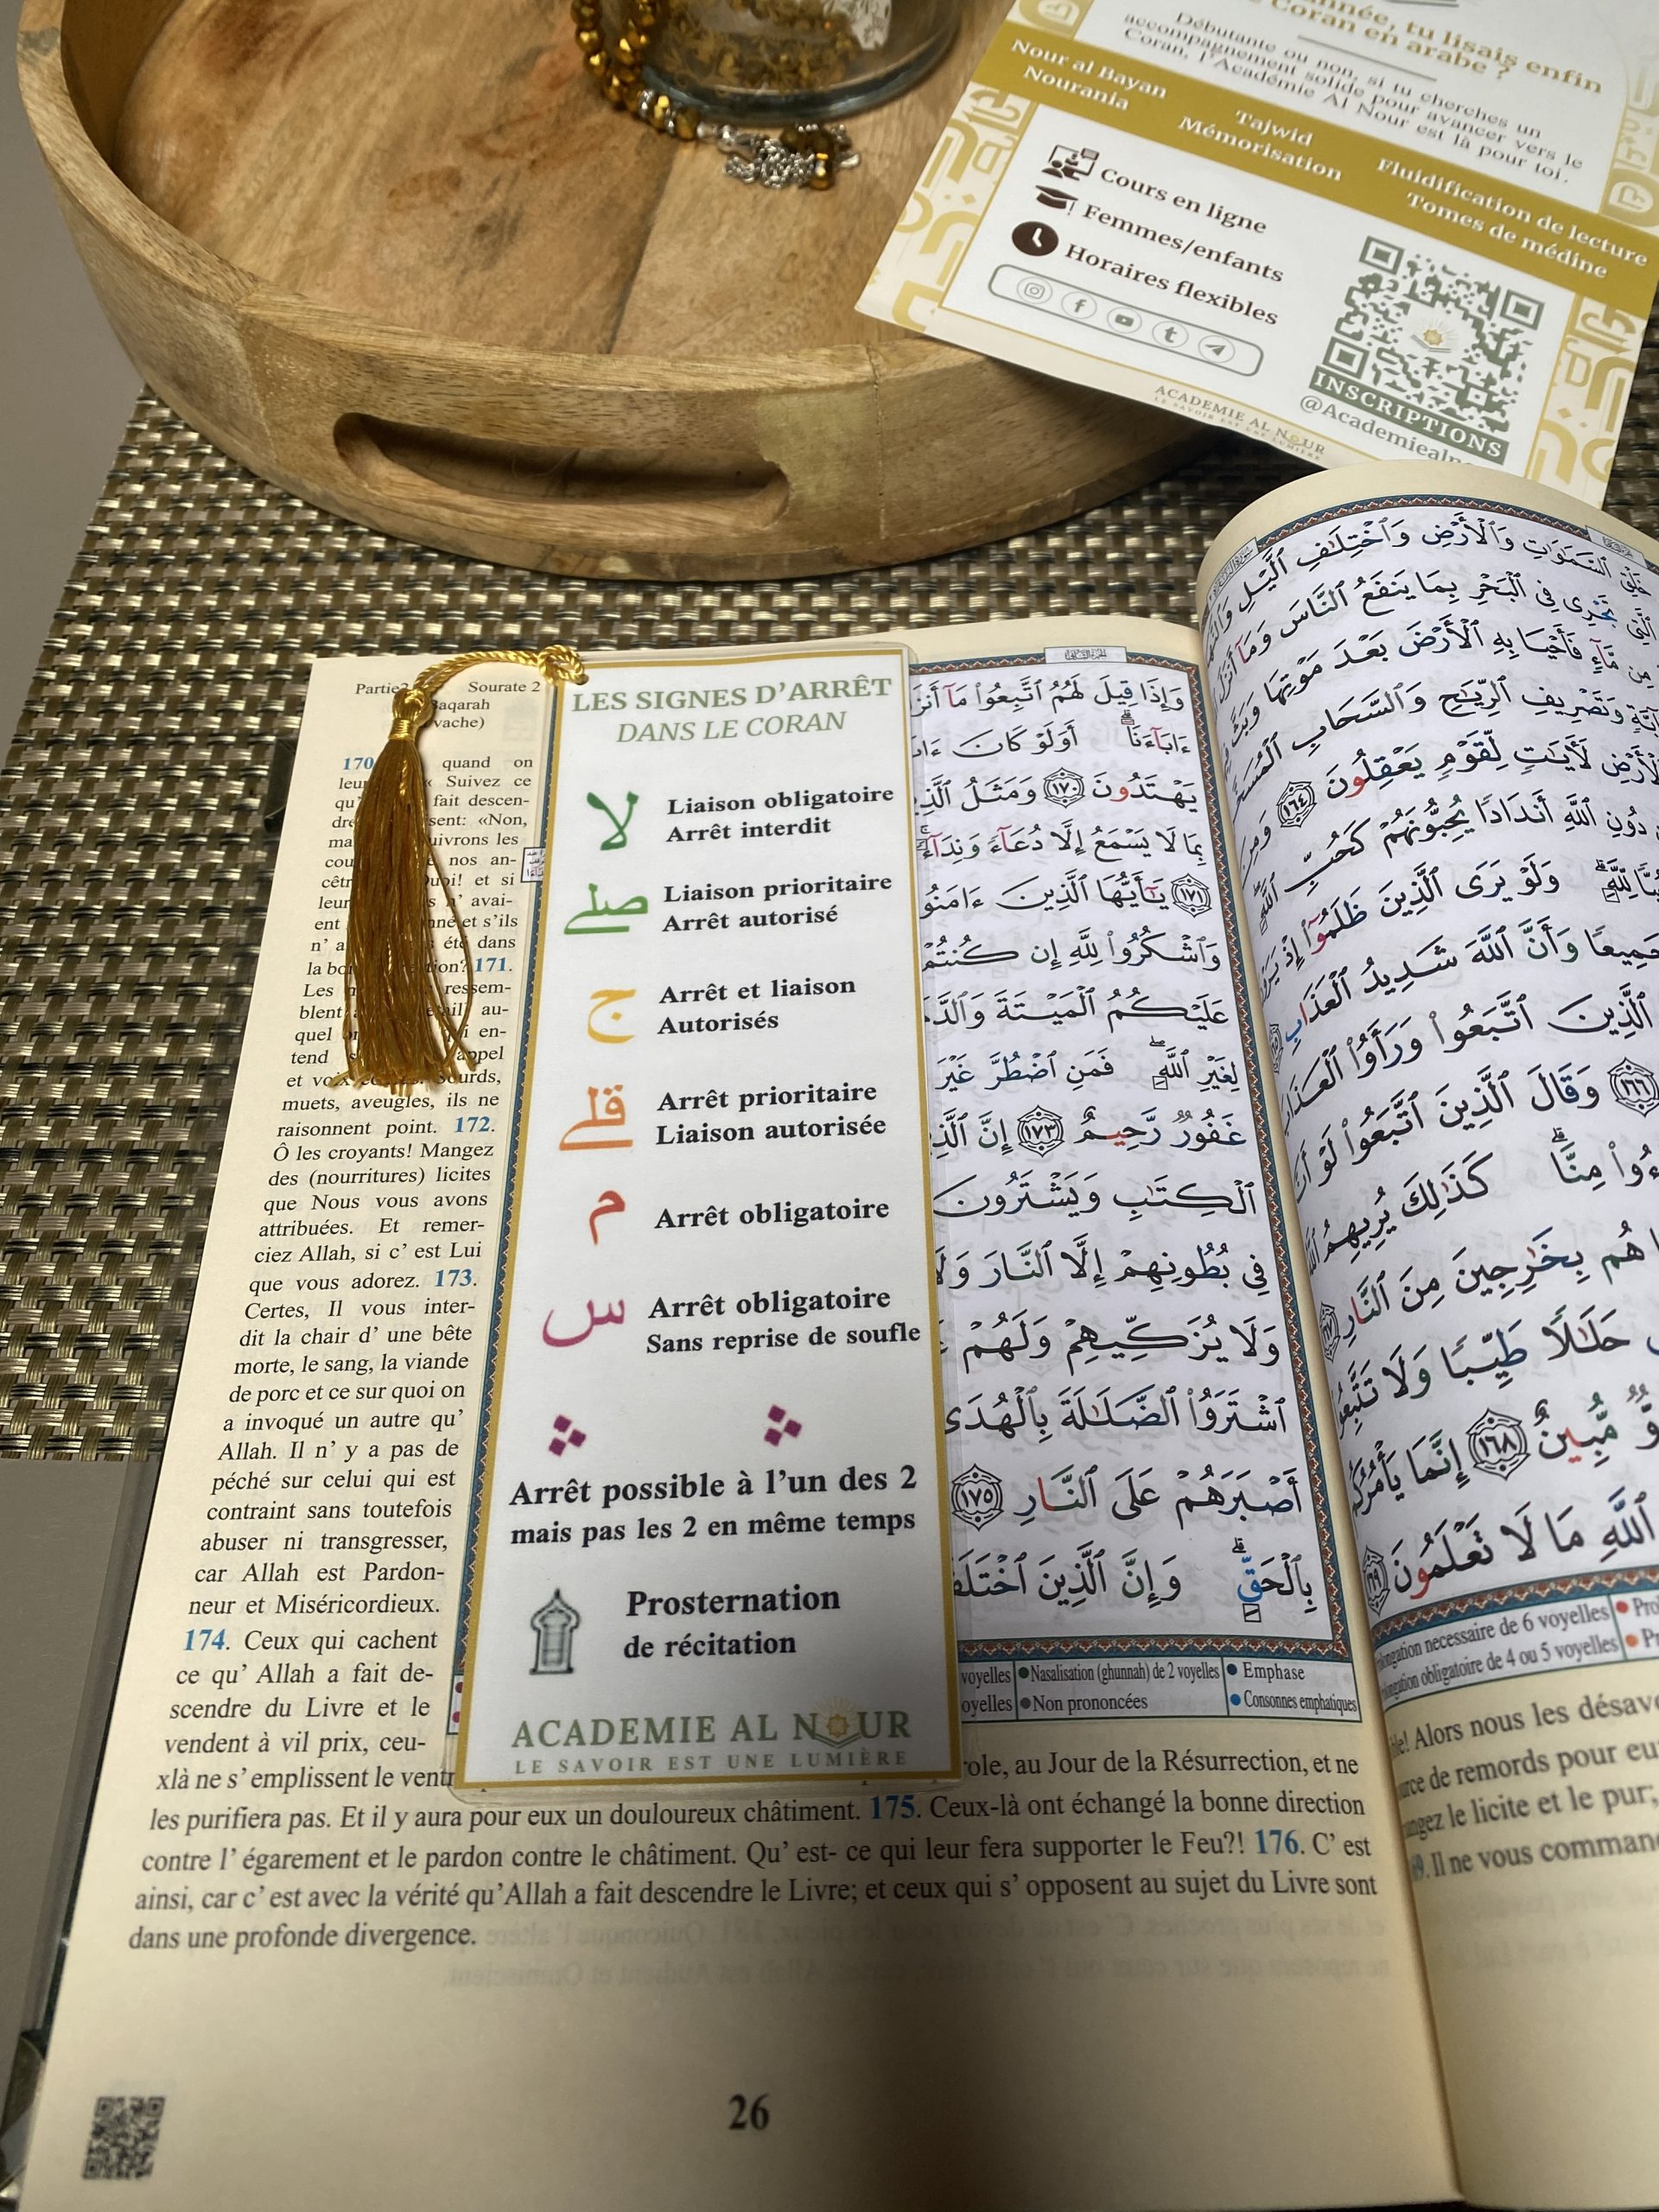 nnée, tu lisais enfin
Coran en arabe ?
Débutante ou non, si tu cherches un
accompagnement solide pour avancer vers le
Coran, l'Académie Al Nour est là pour toi.
Nour al Bayan
Nourania
Tajwid
Mémorisation
Fluidification de lecture
Tomes de médine
Cours en ligne
Femmes/enfants
Horaires flexibles
ACADEMIE AL NOUR
LE SAVOIR EST UNE LUMIÈRE
INSCRIPTIONS
@Academiealn
Sourate 2
LES SIGNES D'ARRÊT
DANS LE CORAN
لا
Liaison obligatoire
Arrêt interdit
صلے
Liaison prioritaire
Arrêt autorisé
ج
Arrêt et liaison
Autorisés
قلے
Arrêt prioritaire
Liaison autorisée
م
Arrêt obligatoire
س
Arrêt obligatoire
Sans reprise de soufle
Arrêt possible à l'un des 2
mais pas les 2 en même temps
Prosternation
de récitation
ACADEMIE AL NOUR
LE SAVOIR EST UNE LUMIÈRE
170
quand on
Suivez ce
fait descen-
sent: «Non,
les
nos an-
et si
avai-
et s'ils
été dans
171.
Les
ressem-
blent
au-
quel
en-
tend
appel
muets, aveugles, ils ne
raisonnent point. 172.
Ô les croyants! Mangez
des (nourritures) licites
que Nous vous avons
attribuées. Et remer-
ciez Allah, si c' est Lui
que vous adorez. 173.
Certes, Il vous inter-
dit la chair d' une bête
morte, le sang, la viande
de porc et ce sur quoi on
a invoqué un autre qu'
Allah. Il n' y a pas de
péché sur celui qui est
contraint sans toutefois
abuser ni transgresser,
car Allah est Pardon-
neur et Miséricordieux.
174. Ceux qui cachent
ce qu' Allah a fait de-
scendre du Livre et le
vendent à vil prix, ceu-
xlà ne s' emplissent le ventr
role, au Jour de la Résurrection, et ne
les purifiera pas. Et il y aura pour eux un douloureux châtiment. 175. Ceux-là ont échangé la bonne direction
contre l' égarement et le pardon contre le châtiment. Qu' est- ce qui leur fera supporter le Feu?! 176. C' est
ainsi, car c' est avec la vérité qu'Allah a fait descendre le Livre; et ceux qui s' opposent au sujet du Livre sont
dans une profonde divergence.
26
وَإِذَا قِيلَ لَهُمُ ٱتَّبِعُوا۟ مَآ أَنزَ
ءَابَآءَنَآ أَوَلَوْ كَانَ ءَاب
يَهْتَدُونَ ١٧٠ وَمَثَلُ ٱلَّذِ
بِمَا لَا يَسْمَعُ إِلَّا دُعَآءً وَنِدَآءً
١٧١ يَٰٓأَيُّهَا ٱلَّذِينَ ءَامَنُو
وَٱشْكُرُوا۟ لِلَّهِ إِن كُنتُمْ
عَلَيْكُمُ ٱلْمَيْتَةَ وَٱلدَّمَ
لِغَيْرِ ٱللَّهِ فَمَنِ ٱضْطُرَّ غَيْرَ
غَفُورٌ رَّحِيمٌ ١٧٣ إِنَّ ٱلَّذِ
ٱلْكِتَٰبِ وَيَشْتَرُونَ
فِى بُطُونِهِمْ إِلَّا ٱلنَّارَ وَلَا
وَلَا يُزَكِّيهِمْ وَلَهُمْ
ٱشْتَرَوُا۟ ٱلضَّلَٰلَةَ بِٱلْهُدَى
أَصْبَرَهُمْ عَلَى ٱلنَّارِ ١٧٥
بِٱلْحَقِّ وَإِنَّ ٱلَّذِينَ ٱخْتَلَف
voyelles
Nasalisation (ghunnah) de 2 voyelles
Emphase
oyelles
Non prononcées
Consonnes emphatiques
خَلْقِ ٱلسَّمَٰوَٰتِ وَٱلْأَرْضِ وَٱخْتِلَٰفِ ٱلَّيْلِ
ٱلَّتِى تَجْرِى فِى ٱلْبَحْرِ بِمَا يَنفَعُ ٱلنَّاسَ وَمَآ
مِن مَّآءٍ فَأَحْيَا بِهِ ٱلْأَرْضَ بَعْدَ مَوْتِهَا وَبَثَّ
وَتَصْرِيفِ ٱلرِّيَٰحِ وَٱلسَّحَابِ ٱلْمُسَخَّ
لَءَايَٰتٍ لِّقَوْمٍ يَعْقِلُونَ ١٦٤
دُونِ ٱللَّهِ أَندَادًا يُحِبُّونَهُمْ كَحُبِّ
لِّلَّهِ وَلَوْ يَرَى ٱلَّذِينَ ظَلَمُوٓا۟ إِذْ
جَمِيعًا وَأَنَّ ٱللَّهَ شَدِيدُ ٱلْعَذَابِ
ٱلَّذِينَ ٱتَّبَعُوا۟ وَرَأَوُا۟ ٱلْعَذَابَ
١٦٦ وَقَالَ ٱلَّذِينَ ٱتَّبَعُوا۟ لَوْ أَنَّ
مِنَّا كَذَٰلِكَ يُرِيهِمُ
هُم بِخَٰرِجِينَ مِنَ ٱلنَّارِ
حَلَٰلًا طَيِّبًا وَلَا تَتَّبِعُو
مُّبِينٌ ١٦٨ إِنَّمَا يَأْمُرُكُ
ٱللَّهِ مَا لَا تَعْلَمُونَ
longation necessaire de 6 voyelles
longation obligatoire de 4 ou 5 voyelles
Alors nous les désav
de remords pour eu
ngez le licite et le pur;
Il ne vous comman